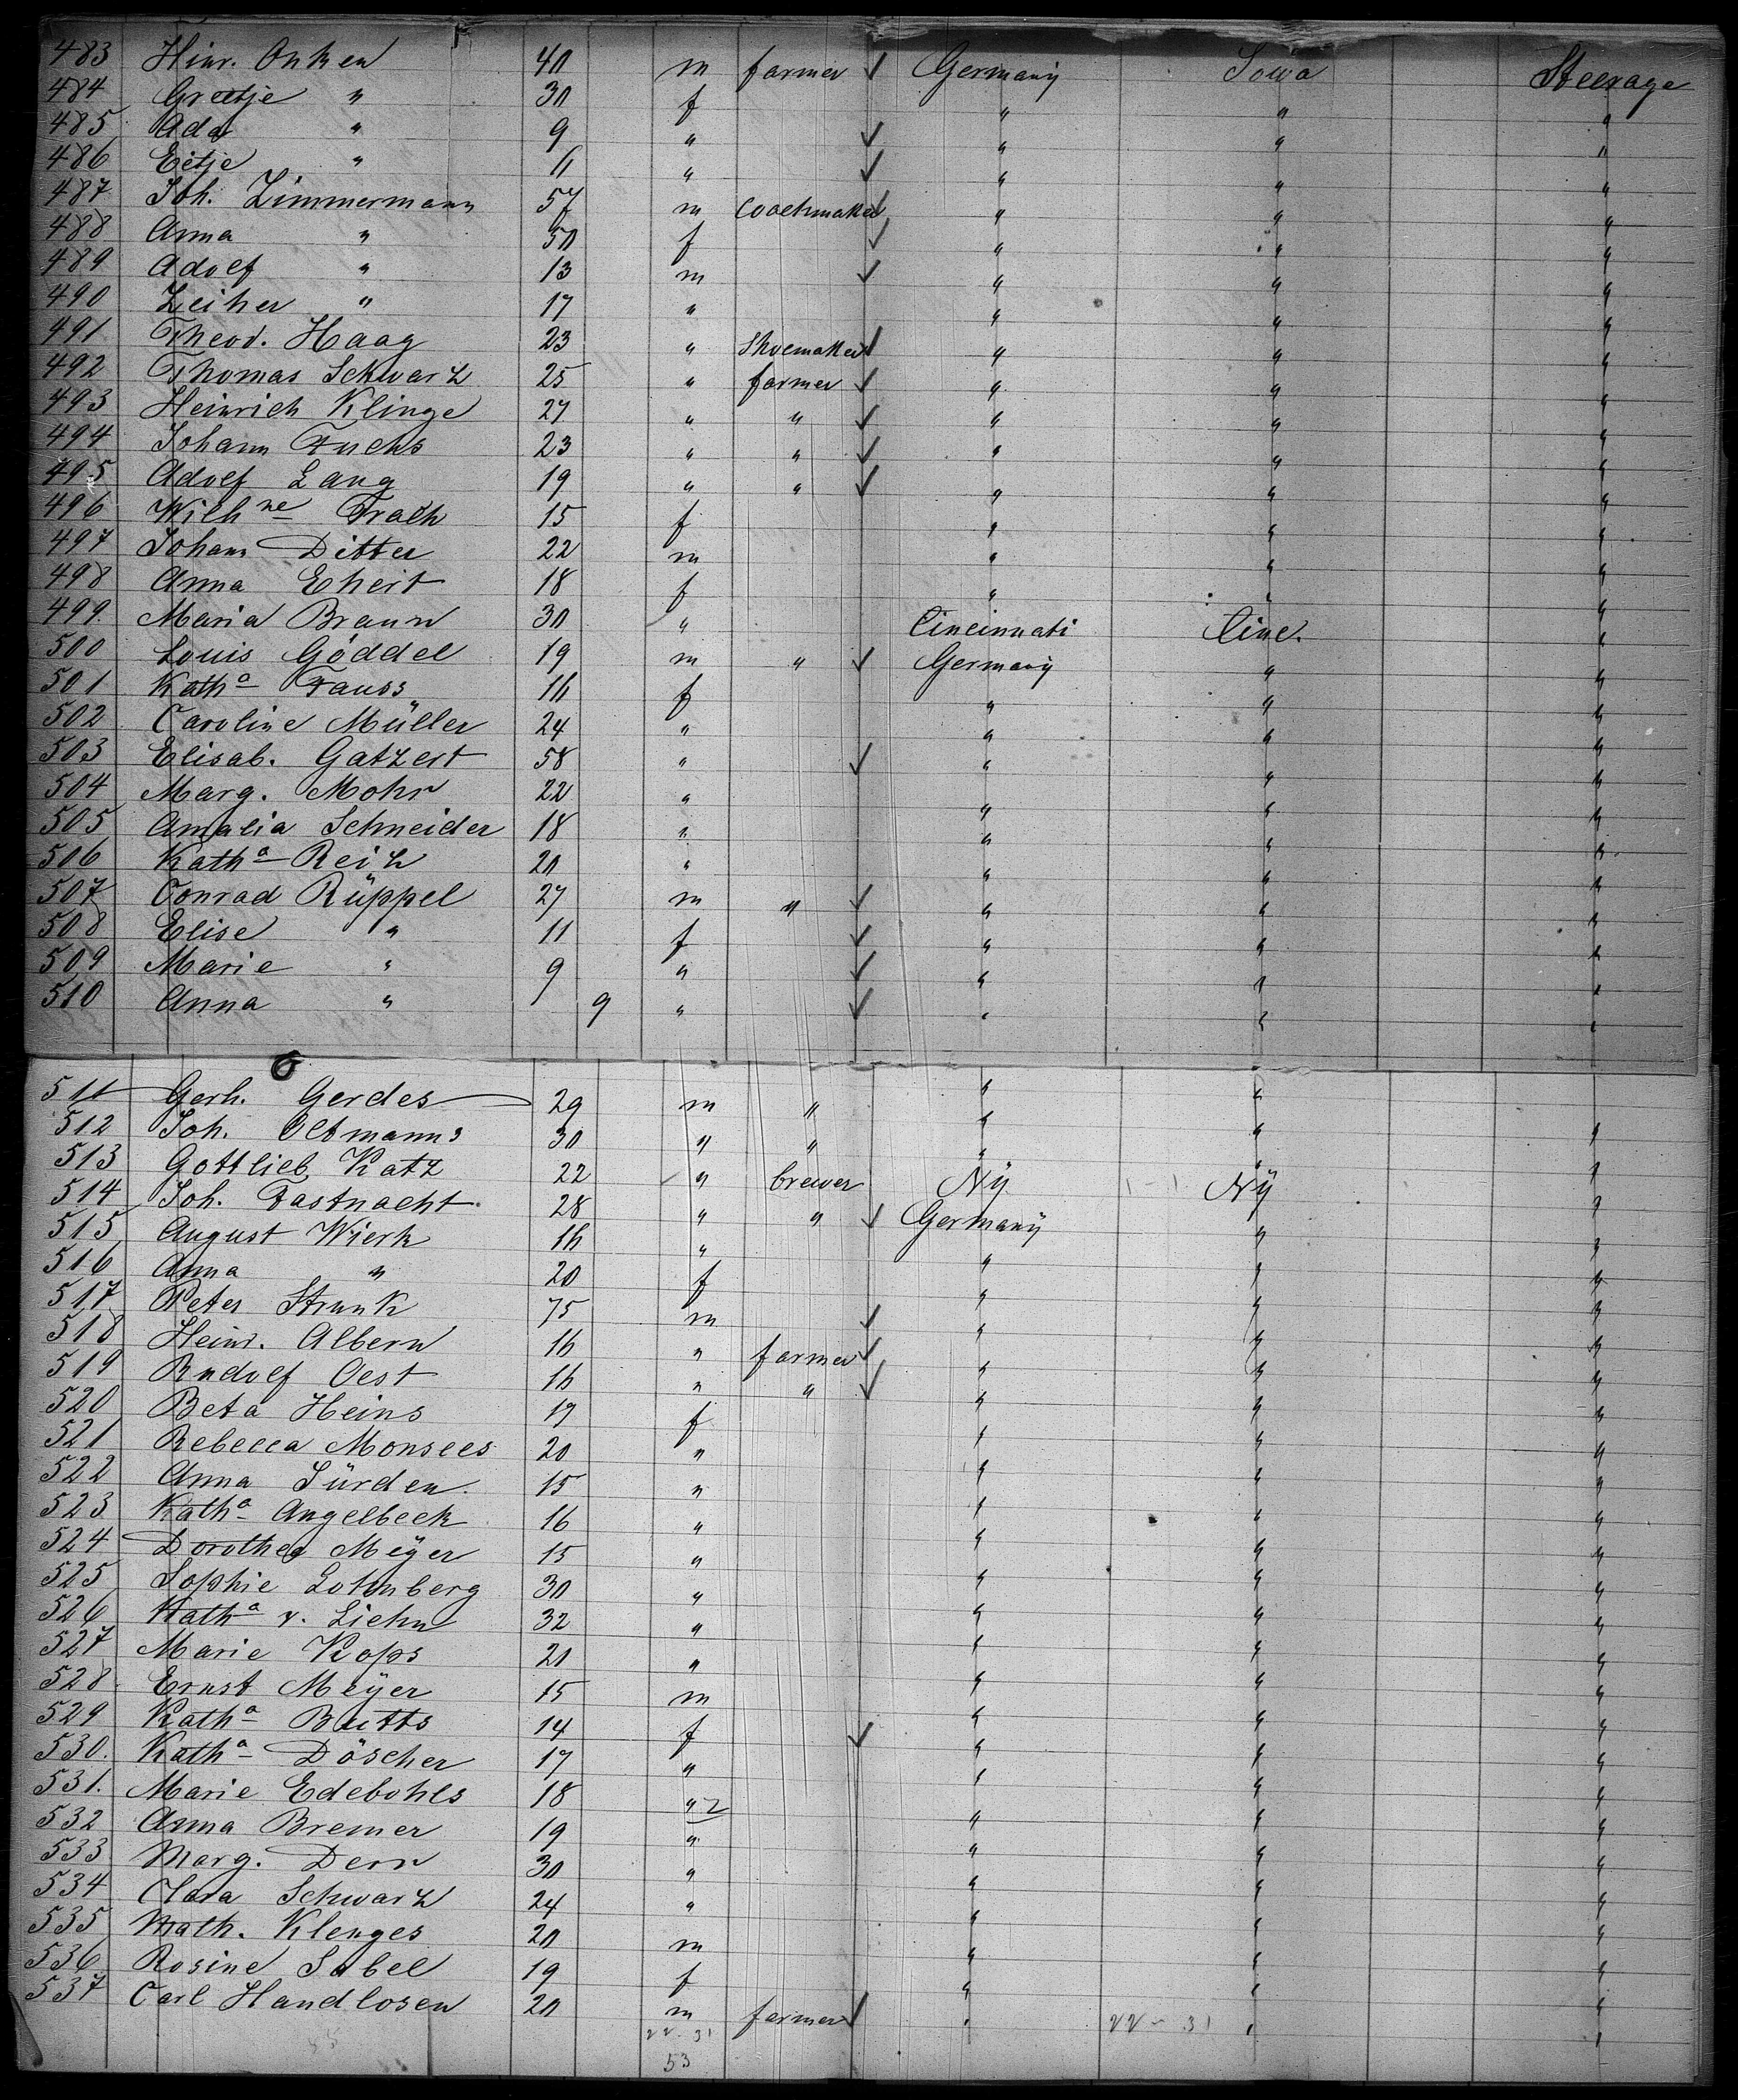 483 Hinr. Onken 40 m farmer ✓ Germany Iowa Steerage
484 Greetje " 30 f " " "
485 Ada " 9 " ✓ " " "
486 Eetje " 11 " ✓ " " "
487 Joh. Zimmermann 57 m coachmaker ✓ " " "
488 Anna " 50 f ✓ " " "
489 Adolf " 13 m ✓ " " "
490 " 17 " " " "
491 Theod. Haag 23 " Shoemaker ✓ " " "
492 Thomas Schwarz 25 " farmer ✓ " " "
493 Heinrich Klinge 27 " " ✓ " " "
494 Johann Fuchs 23 " " ✓ " " "
495 Adolf Lang 19 " " ✓ " " "
496 Wilhne 15 f " " "
497 Johann Ditter 22 m " " "
498 Anna Ehert 18 f " " "
499. Maria Braun 30 " Cincinnati Cinc. "
500 Louis Göddel 19 m " ✓ Germany " "
501 Katha Fauss 16 f " " "
502 Caroline Müller 24 " " " "
503 Elisab. Gatzert 58 " ✓ " " "
504 Marg. Mohr 22 " " " "
505 Amalia Schneider 18 " " " "
506 Katha Reiz 20 " " " "
507 Conrad Rüppel 27 m " ✓ " " "
508 Elise " 11 f ✓ " " "
509 Marie " 9 " ✓ " " "
510 Anna " 9 " ✓ " " "
511 Gerh. Gerdes 29 m " " "
512 Joh. Oltmanns 30 " " " " "
513 Gottlieb Katz 22 " brewer NY NY "
514 Joh. Fastnacht 28 " " ✓ Germany " "
515 August Wierk 16 " " " "
516 Anna " 20 f " " "
517 Peter Strunk 75 m ✓ " " "
518 Heinr. Albern 16 " farmer ✓ " " "
519 Rudolf Oest 16 " " ✓ " " "
520 Beta Heins 17 f " " "
521 Rebecca Monsees 20 " " " "
522 Anna Sürden 15 " " " "
523 Katha Angelbeck 16 " " " "
524 Dorothea Meÿer 15 " " " "
525 Sophie 30 " " " "
526 Katha v. Liehn 32 " " " "
527 Marie Kops 20 " " " "
528 Ernst Meÿer 15 m " " "
529 Katha Butts 14 f ✓ " " "
530. Katha Döscher 17 " " " "
531. Marie Edebohls 18 " 2 " " "
532 Anna Bremer 19 " " " "
533 Marg. Dern 30 " " " "
534 Clara Schwarz 24 " " " "
535 Math. Klenges 20 m " " "
536 Rosine Sabel 19 f " " "
537 Carl Handlosen 20 m farmer ✓ " " "
22-31 22-31
53